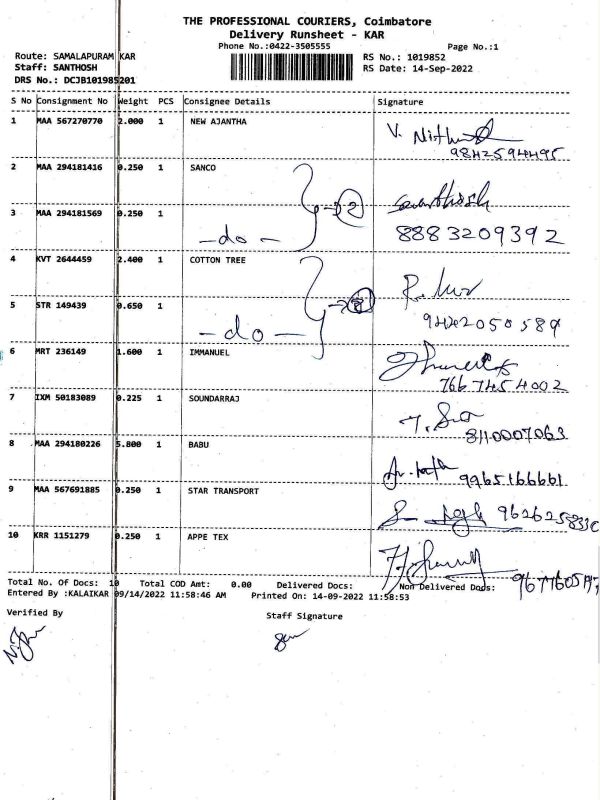 THE PROFESSIONAL COURIERS, Coimbatore
Delivery Runsheet - KAR
Phone No.:0422-3505555 Page No.:1
Route: SAMALAPURAM KAR RS No.: 1019852
Staff: SANTHOSH RS Date: 14-Sep-2022
DRS No.: DCJB101985201
S No Consignment No Weight PCS Consignee Details Signature
1 MAA 567270770 2.000 1 NEW AJANTHA V.
9842594495
2 MAA 294181416 0.250 1 SANCO Santhosh
3 MAA 294181569 0.250 1 -do- 2 8883209392
4 KVT 2644459 2.400 1 COTTON TREE R.
5 STR 149439 0.650 1 -do-
6 MRT 236149 1.600 1 IMMANUEL
7667454002
7 IXM 50183089 0.225 1 SOUNDARRAJ
8110007063
8 MAA 294180226 5.800 1 BABU
9965166661
9 MAA 567691885 0.250 1 STAR TRANSPORT
10 KRR 1151279 0.250 1 APPE TEX
Total No. Of Docs: 10 Total COD Amt: 0.00 Delivered Docs: Non Delivered Docs:
Entered By :KALAIKAR 09/14/2022 11:58:46 AM Printed On: 14-09-2022 11:58:53
Verified By Staff Signature